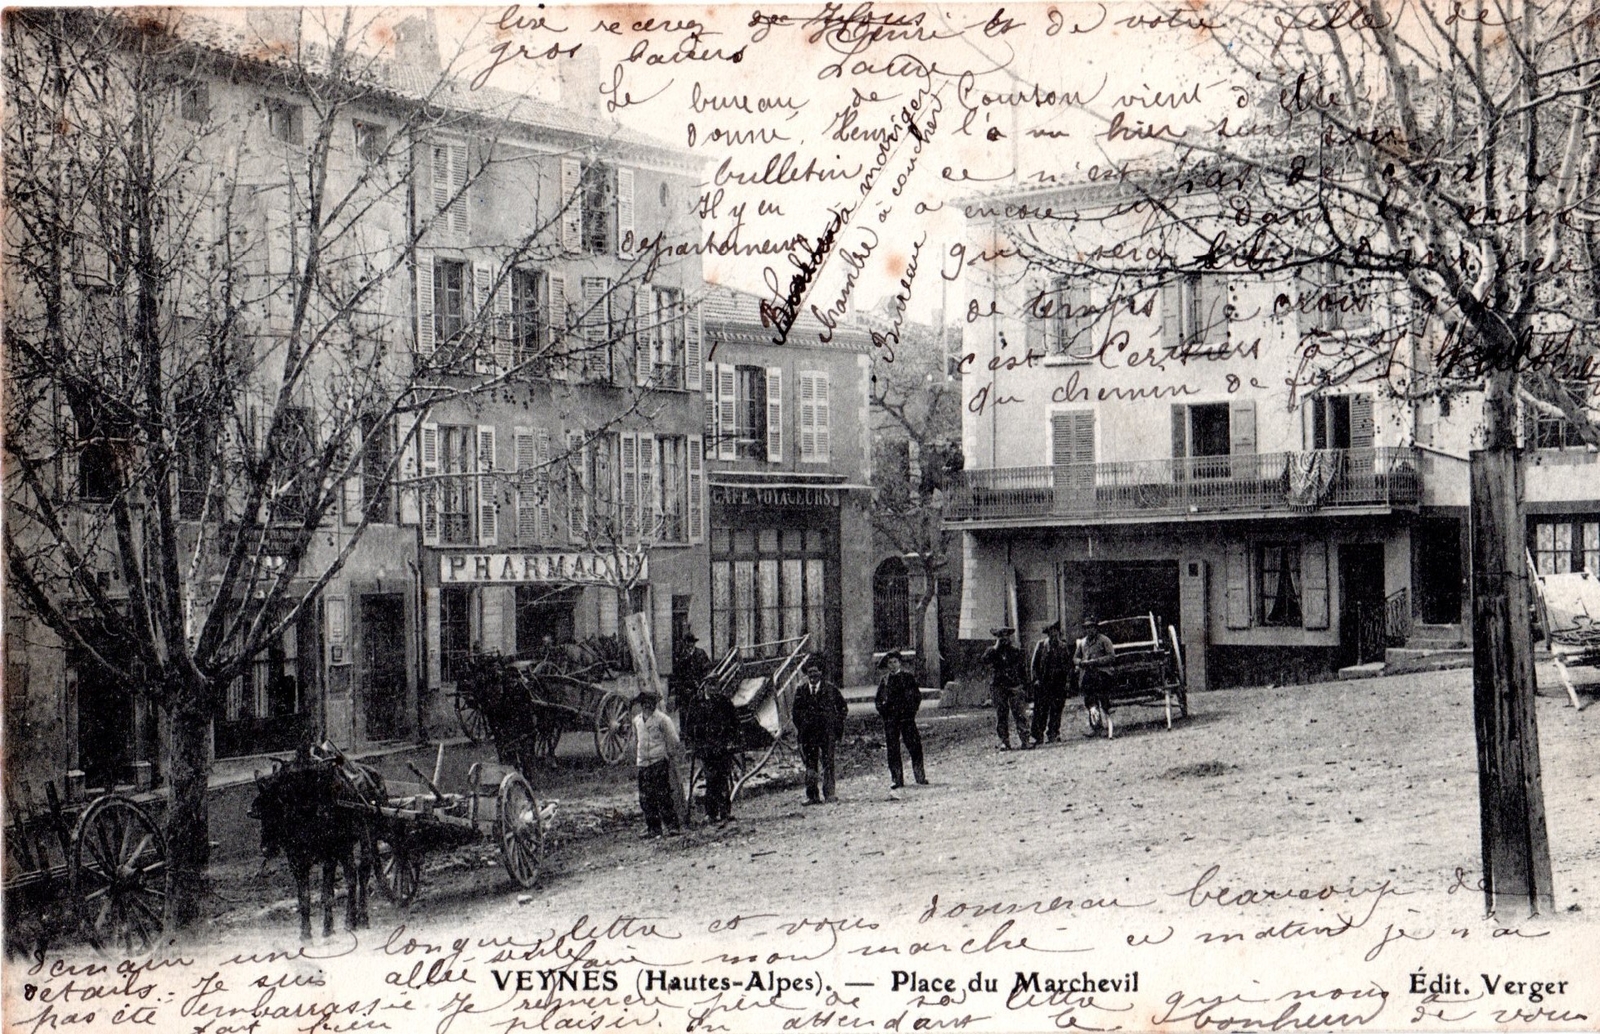 lire recevez de Henri et de votre fille de
gros baisers Laure
Le bureau de Courson vient d'être
donné, Henri l'a vu hier sur son
bulletin ce n'est pas de chance
Il y en a encore un dans le même
département qui sera libre dans peu
de temps je crois que
c'est Cerisiers à
du chemin de fer
à manger
chambre à coucher
Bureau
PHARMACIE
CAFÉ VOYAGEURS
demain une longue lettre et vous donnerai beaucoup de
détails. Je suis allée seule faire mon marché ce matin je n'ai
VEYNES (Hautes-Alpes). — Place du Marchevil
Édit. Verger
pas été embarrassée Je remercie père de sa lettre qui nous a
fait bien plaisir. En attendant le bonheur de vous